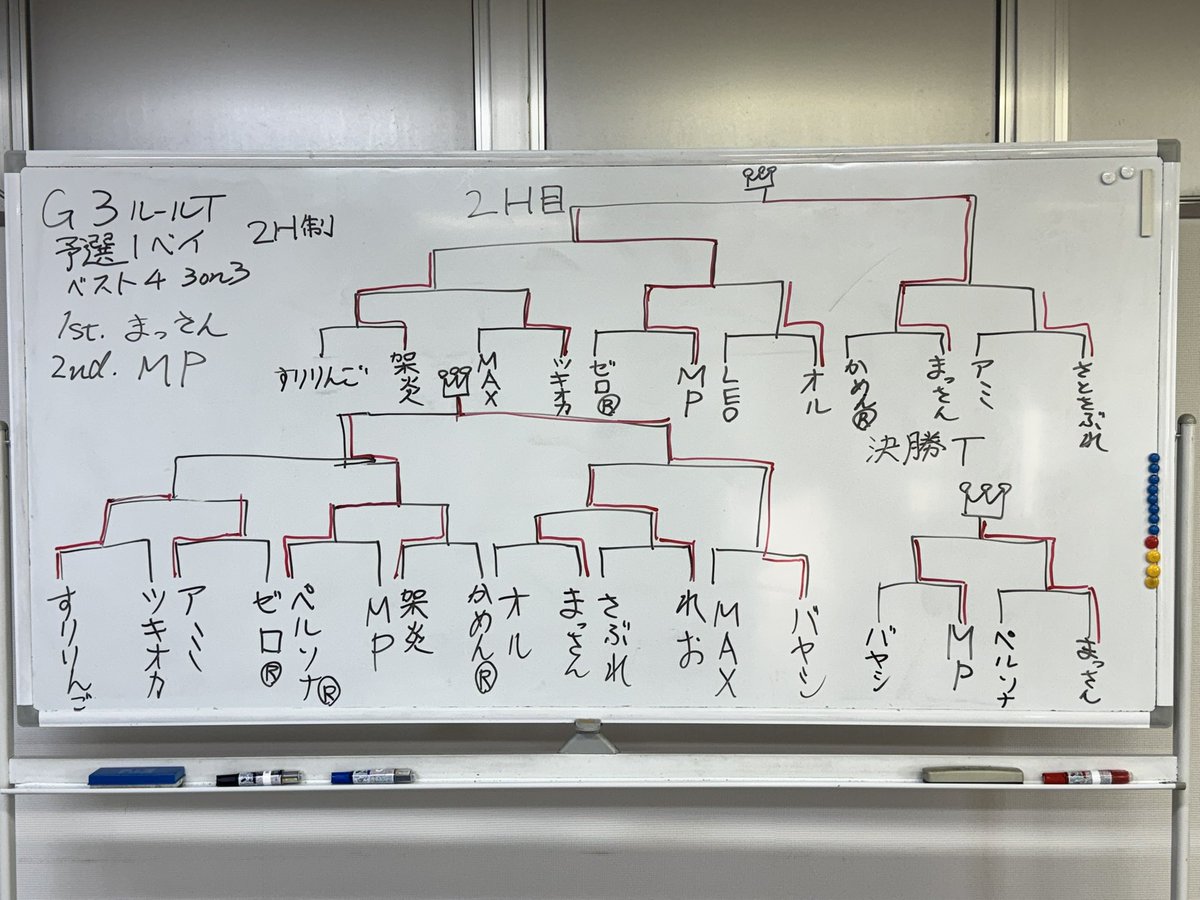 G3ルールT
予選1ベイ
2H制
ベスト4 3on3
1st. まっさん
2nd. MP
2H目
すりりんご
架炎
MAX
ツキオカ
ゼロⓇ
MP
LEO
オル
かめんⓇ
まっさん
アミ
さとさぶれ
すりりんご
ツキオカ
アミ
ゼロⓇ
ペルソナⓇ
MP
架炎
かめんⓇ
オル
まっさん
さぶれ
れお
MAX
バヤシ
決勝T
バヤシ
MP
ペルソナ
まっさん